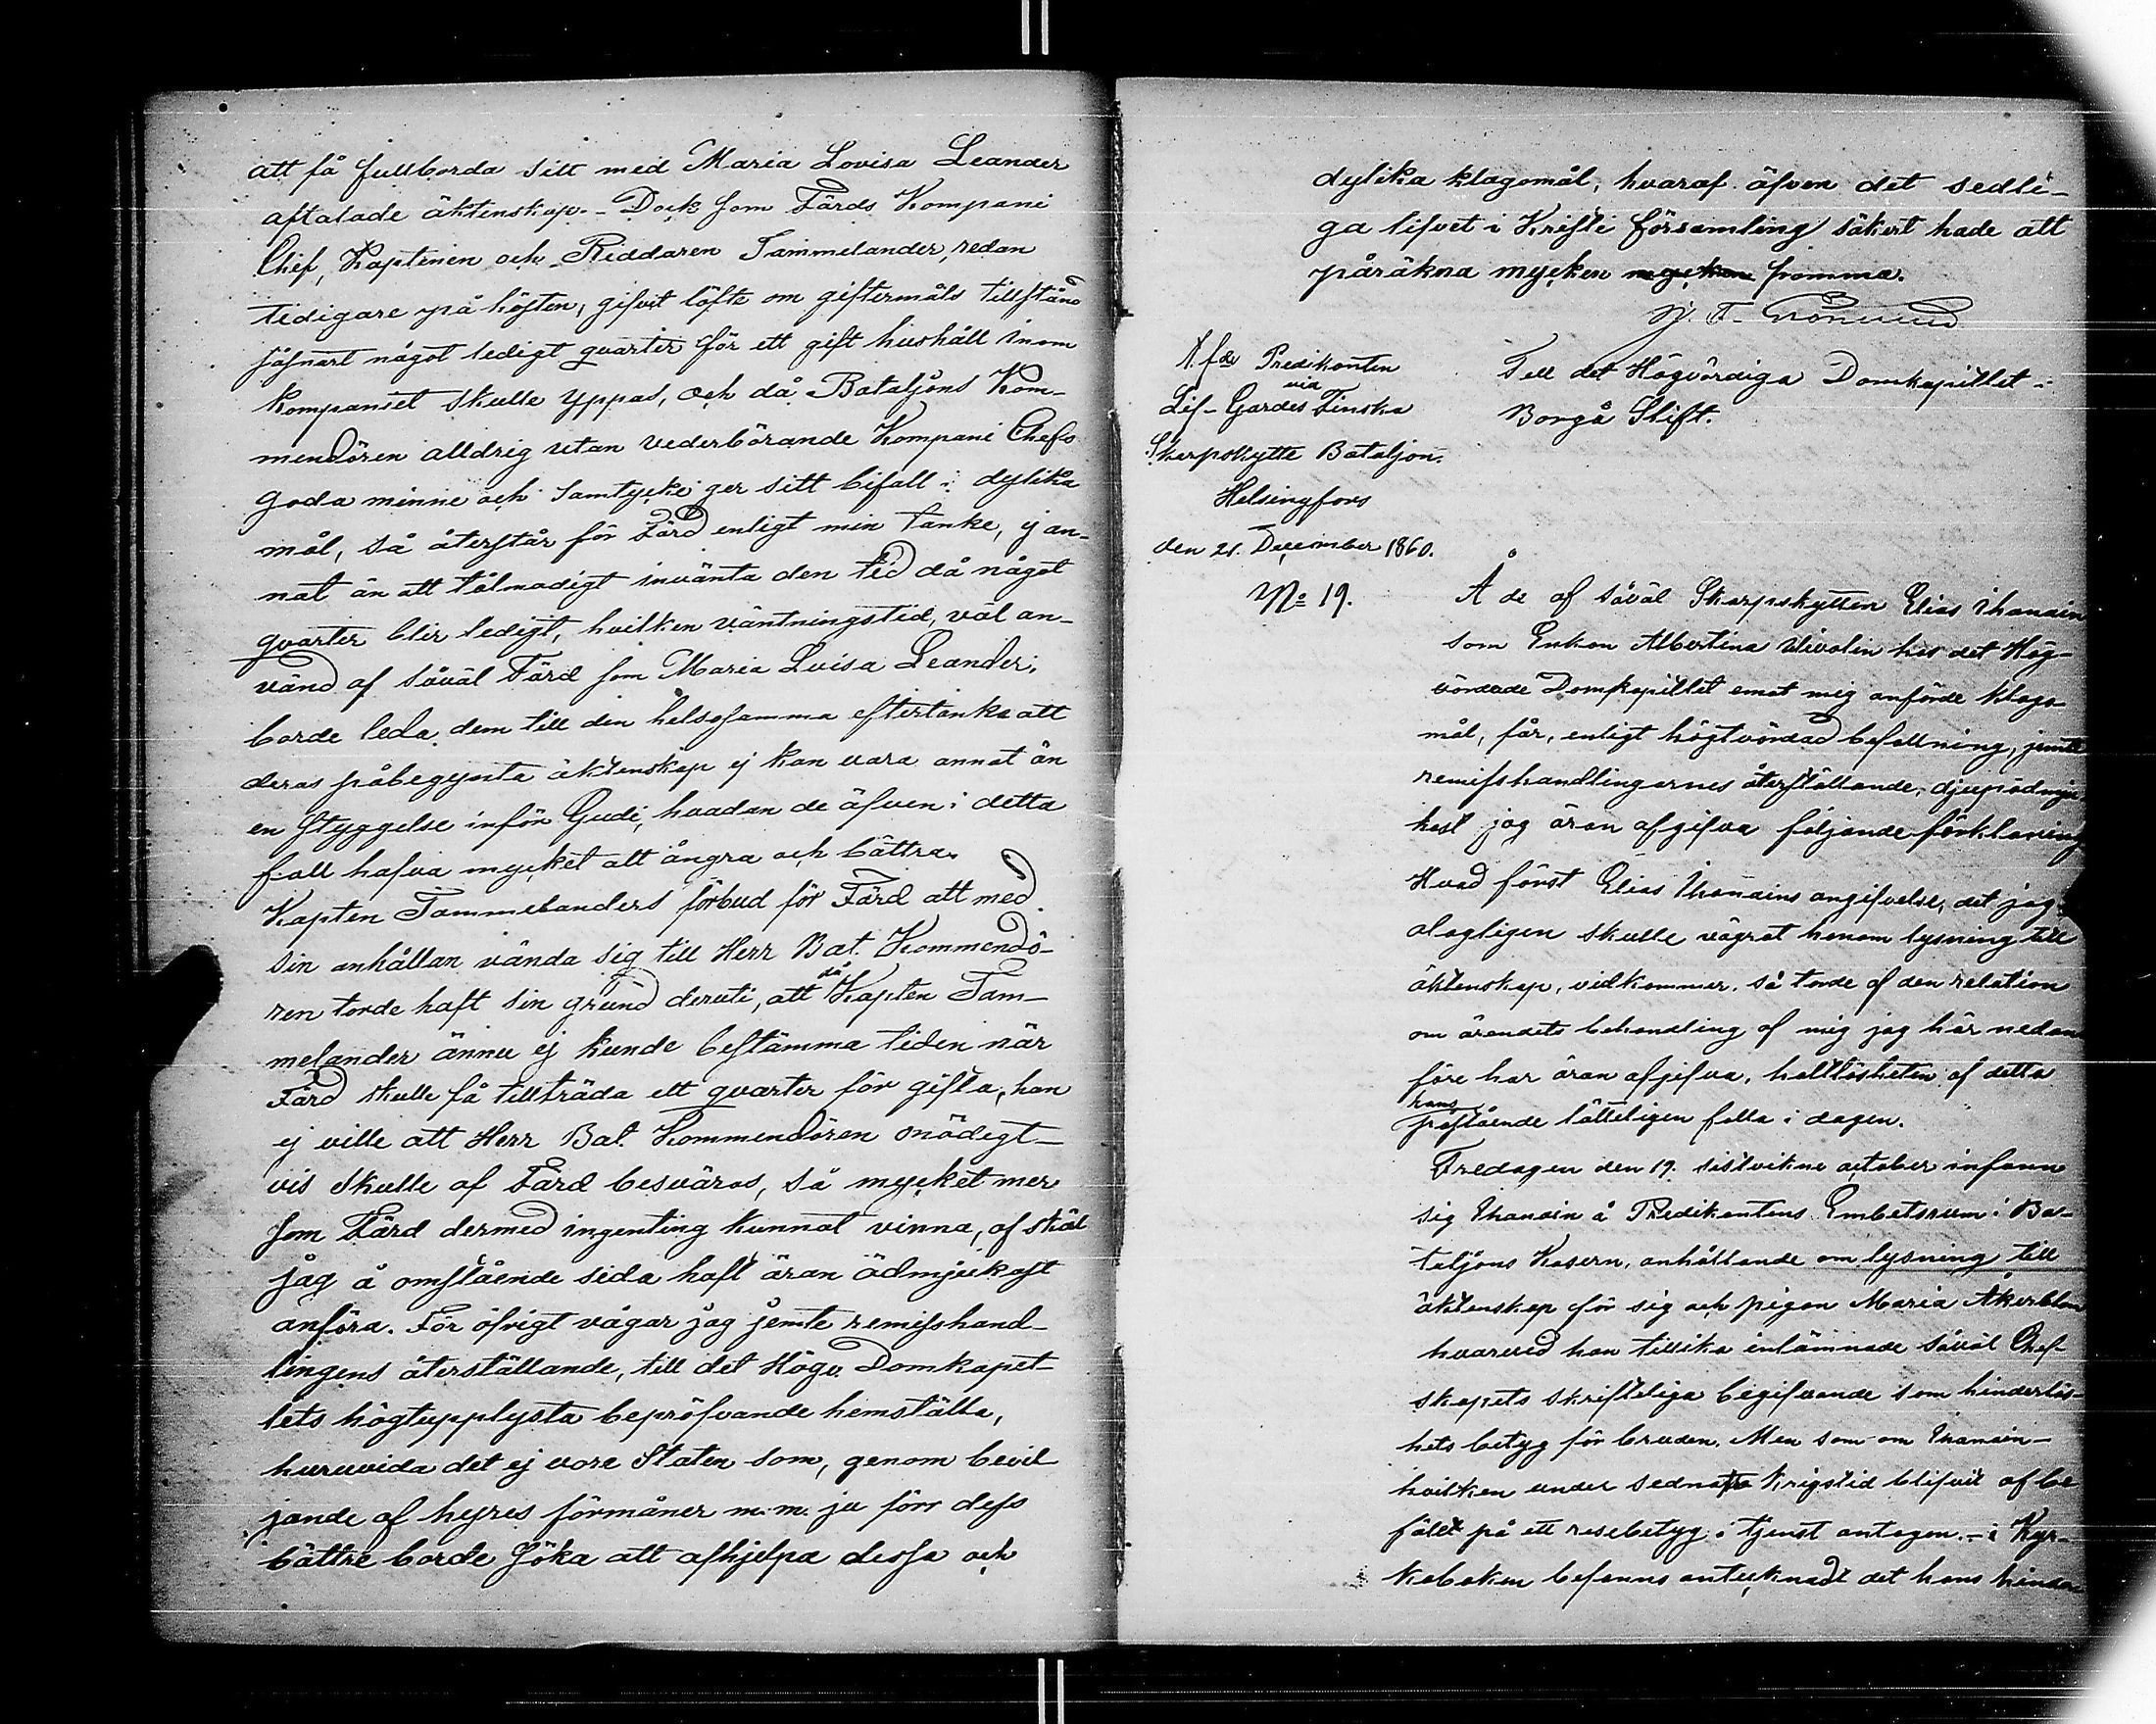 att få fullborda sitt med Maria Lovisa Leander
aftalade äktenskap. - Dock som Färds Kompani
Chef, Kaptenen och Riddaren Tammelander, redan
tidigare på hösten, gifvit löfte om giftermåls tillstånd
såsnart något ledigt qvarter för ett gift hushåll inom
kompaniet skulle yppas, och då Bataljons Kom-
mendören alldrig utan vederbörande Kompani Chefs
goda minne och samtycke ger sitt bifall i dylika
mål, så återstår för Färd enligt min tanke, ej an-
nat än att tålmodigt invänta den tid då något
qvarter blir ledigt, hvilken väntningstid, väl an-
vänd af såväl Färd som Maria Lovisa Leander,
borde leda dem till den helsosamma eftertanke att
deras påbegynta äktenskap ej kan vara annat än
en styggelse inför Gud, hvadan de äfven i detta
fall hafva mycket att ångra och bättra.
Kapten Tammelanders förbud för Färd att med
sin anhållan vända sig till Herr Bat. Kommendö-
ren torde haft sin grund deruti, att då Kapten Tam-
melander ännu ej kunde bestämma tiden när
Färd skulle få tillträda ett qvarter för gifta, han
ej ville att Herr Bat. Kommendören onödigt-
vis skulle af Färd besväras, så mycket mer
som Färd dermed ingenting kunnat vinna, af skäl
jag å omstående sida haft äran ödmjukast
anföra. För öfrigt vågar jag jemte remisshand-
lingens återställande, till det Högv. Domkapit-
lets högtupplysta bepröfvande hemställa,
huruvida det ej vore Staten som, genom bevil-
jande af hyres förmåner m.m. ju förr dess
bättre borde söka att afhjelpa dessa och
dylika klagomål, hvaraf äfven det sedli-
ga lifvet i Kristi församling säkert hade att
påräkna mycken fromma.
Predikanten
vid
Lif-Gardes Finska
Skarpskytte Bataljon.
Helsingfors
den 21. December 1860.
No 19.
Till det Högvördiga Domkapitlet i
Borgå Stift.
Å de af såväl Skarpskytten Elias Ihanain
som Enkan Albertina hos det Hög-
vördade Domkapitlet emot mig anförde klago-
mål, får, enligt högtvördad befallning, jemte
remisshandlingarnes återställande, djupödmju-
kast jag äran afgifva följande förklaring
Hvad först Elias Ihanains angifvelse, det jag
olagligen skulle vägrat honom lysning till
äktenskap, vidkommer, så torde af den relation
om ärendets behandling af mig jag här nedan-
före har äran afgifva, halltlösheten af detta
hans
påstående lätteligen falla i dagen.
Fredagen den 19. sistvikne october infann
sig Ihanain å Predikantens Embetsrum i Ba-
taljons Kasern, anhållande om lysning till
äktenskap för sig och pigan Maria Åkerblom
hvarvid han tillika inlämnade såväl Chef-
skapets skriftliga begifvande som hinderlös-
hets betyg för bruden. Men som om Ihanain-
hvilken under sednaste krigstid blifvit af be
fälet på ett resebetyg i tjenst antagen. - i Kyr-
koboken befanns antecknadt det hans hinder